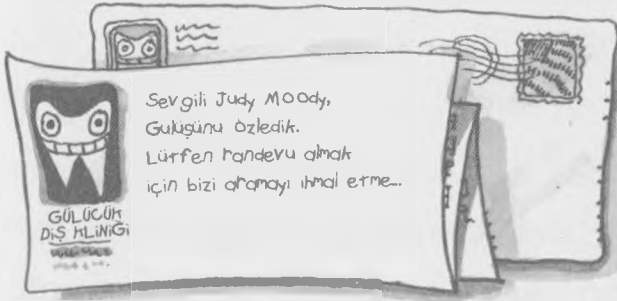 Sevgili Judy MOOdy,
Gülüşünü özledik.
Lütfen randevu almak
için bizi aramayı ihmal etme...
GÜLÜCÜK
DİŞ KLİNİĞİ